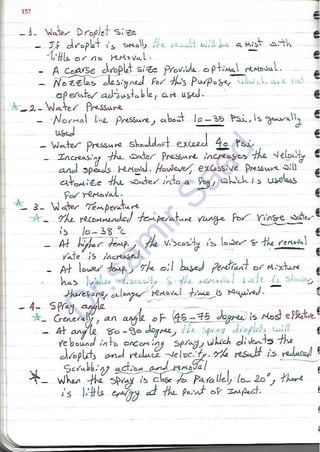 157
- 1. Water Droplet Size
- If droplet is small, the result will be a mist with
little or no removal.
- A coarse droplet size provide optimal removal.
- Nozzles designed for this purpose, which are not
operator adjustable, are used.
- 2 - Water Pressure
- Normal line pressure, about 10-35 Psi, is generally
used
- Water pressure shouldn't exceed 40 Psi.
- Increasing the water pressure increases the velocity
and speeds removal. However, excessive pressure will
atomize the water into a fog, which is useless
for removal.
- 3 - Water Temperature
- The recommended temperature range for rinse water
is 10-38 °C
- At higher temp., the viscosity is lower & the removal
rate is increased
- At lower temp., the oil based penetrant or mixture
has higher viscosity & the removal rate is slower,
therefore, a longer removal time is required.
- 4 - Spray angle
- Generally, an angle of 45-75 degree is most effective.
- At angle 80-90 degree, the spray droplets will
rebound into oncoming spray, which diverts the
droplets and reduce velocity. The result is reduced
scrubbing action and removal
- When the spray is close to parallel, 10-20°, there
is little energy at the point of impact.